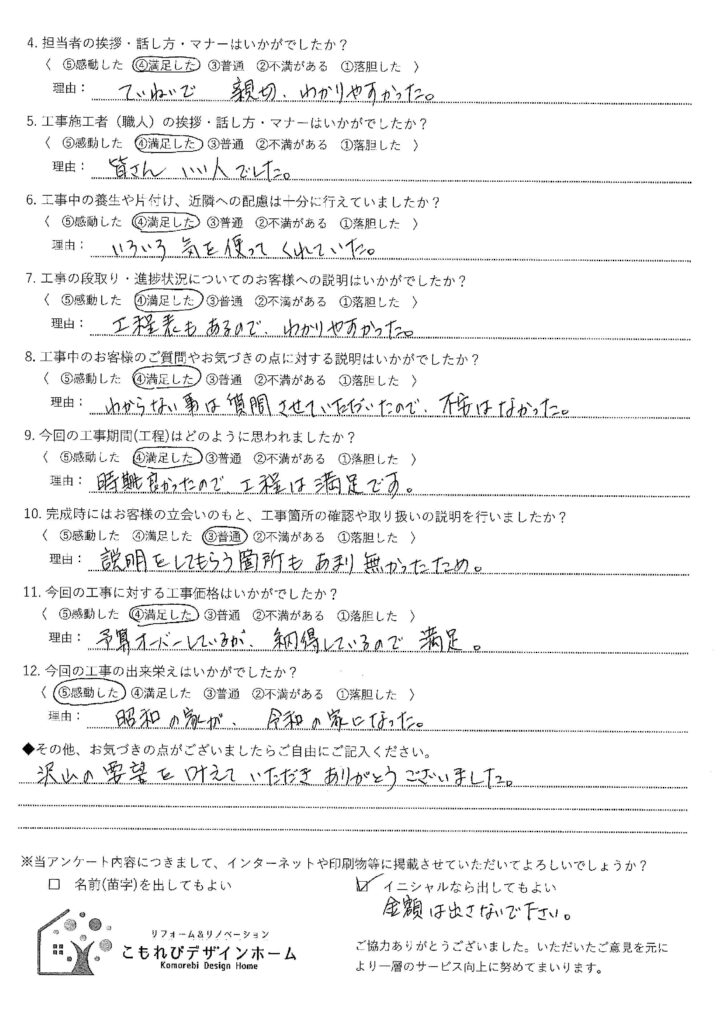 4. 担当者の挨拶・話し方・マナーはいかがでしたか？
〈 ⑤感動した ④満足した ③普通 ②不満がある ①落胆した 〉
理由： ていねいで 親切、わかりやすかった。
5. 工事施工者（職人）の挨拶・話し方・マナーはいかがでしたか？
〈 ⑤感動した ④満足した ③普通 ②不満がある ①落胆した 〉
理由： 皆さん いい人でした。
6. 工事中の養生や片付け、近隣への配慮は十分に行えていましたか？
〈 ⑤感動した ④満足した ③普通 ②不満がある ①落胆した 〉
理由： いろいろ 気を使ってくれていた。
7. 工事の段取り・進捗状況についてのお客様への説明はいかがでしたか？
〈 ⑤感動した ④満足した ③普通 ②不満がある ①落胆した 〉
理由： 工程表もあるので、わかりやすかった。
8. 工事中のお客様のご質問やお気づきの点に対する説明はいかがでしたか？
〈 ⑤感動した ④満足した ③普通 ②不満がある ①落胆した 〉
理由： わからない事は質問させていただいたので、不安はなかった。
9. 今回の工事期間(工程)はどのように思われましたか？
〈 ⑤感動した ④満足した ③普通 ②不満がある ①落胆した 〉
理由： 時期も良かったので 工程は満足です。
10. 完成時にはお客様の立会いのもと、工事箇所の確認や取り扱いの説明を行いましたか？
〈 ⑤感動した ④満足した ③普通 ②不満がある ①落胆した 〉
理由： 説明をしてもらう箇所も あまり 無かったため。
11. 今回の工事に対する工事価格はいかがでしたか？
〈 ⑤感動した ④満足した ③普通 ②不満がある ①落胆した 〉
理由： 予算オーバーしているが、納得しているので 満足。
12. 今回の工事の出来栄えはいかがでしたか？
〈 ⑤感動した ④満足した ③普通 ②不満がある ①落胆した 〉
理由： 昭和の家が、令和の家になった。
◆その他、お気づきの点がございましたらご自由にご記入ください。
沢山の要望を叶えていただきありがとうございました。
※当アンケート内容につきまして、インターネットや印刷物等に掲載させていただいてよろしいでしょうか？
□ 名前(苗字)を出してもよい
☑ イニシャルなら出してもよい
金額は出さないで下さい。
リフォーム&リノベーション
こもれびデザインホーム
Komorebi Design Home
ご協力ありがとうございました。いただいたご意見を元に
より一層のサービス向上に努めてまいります。